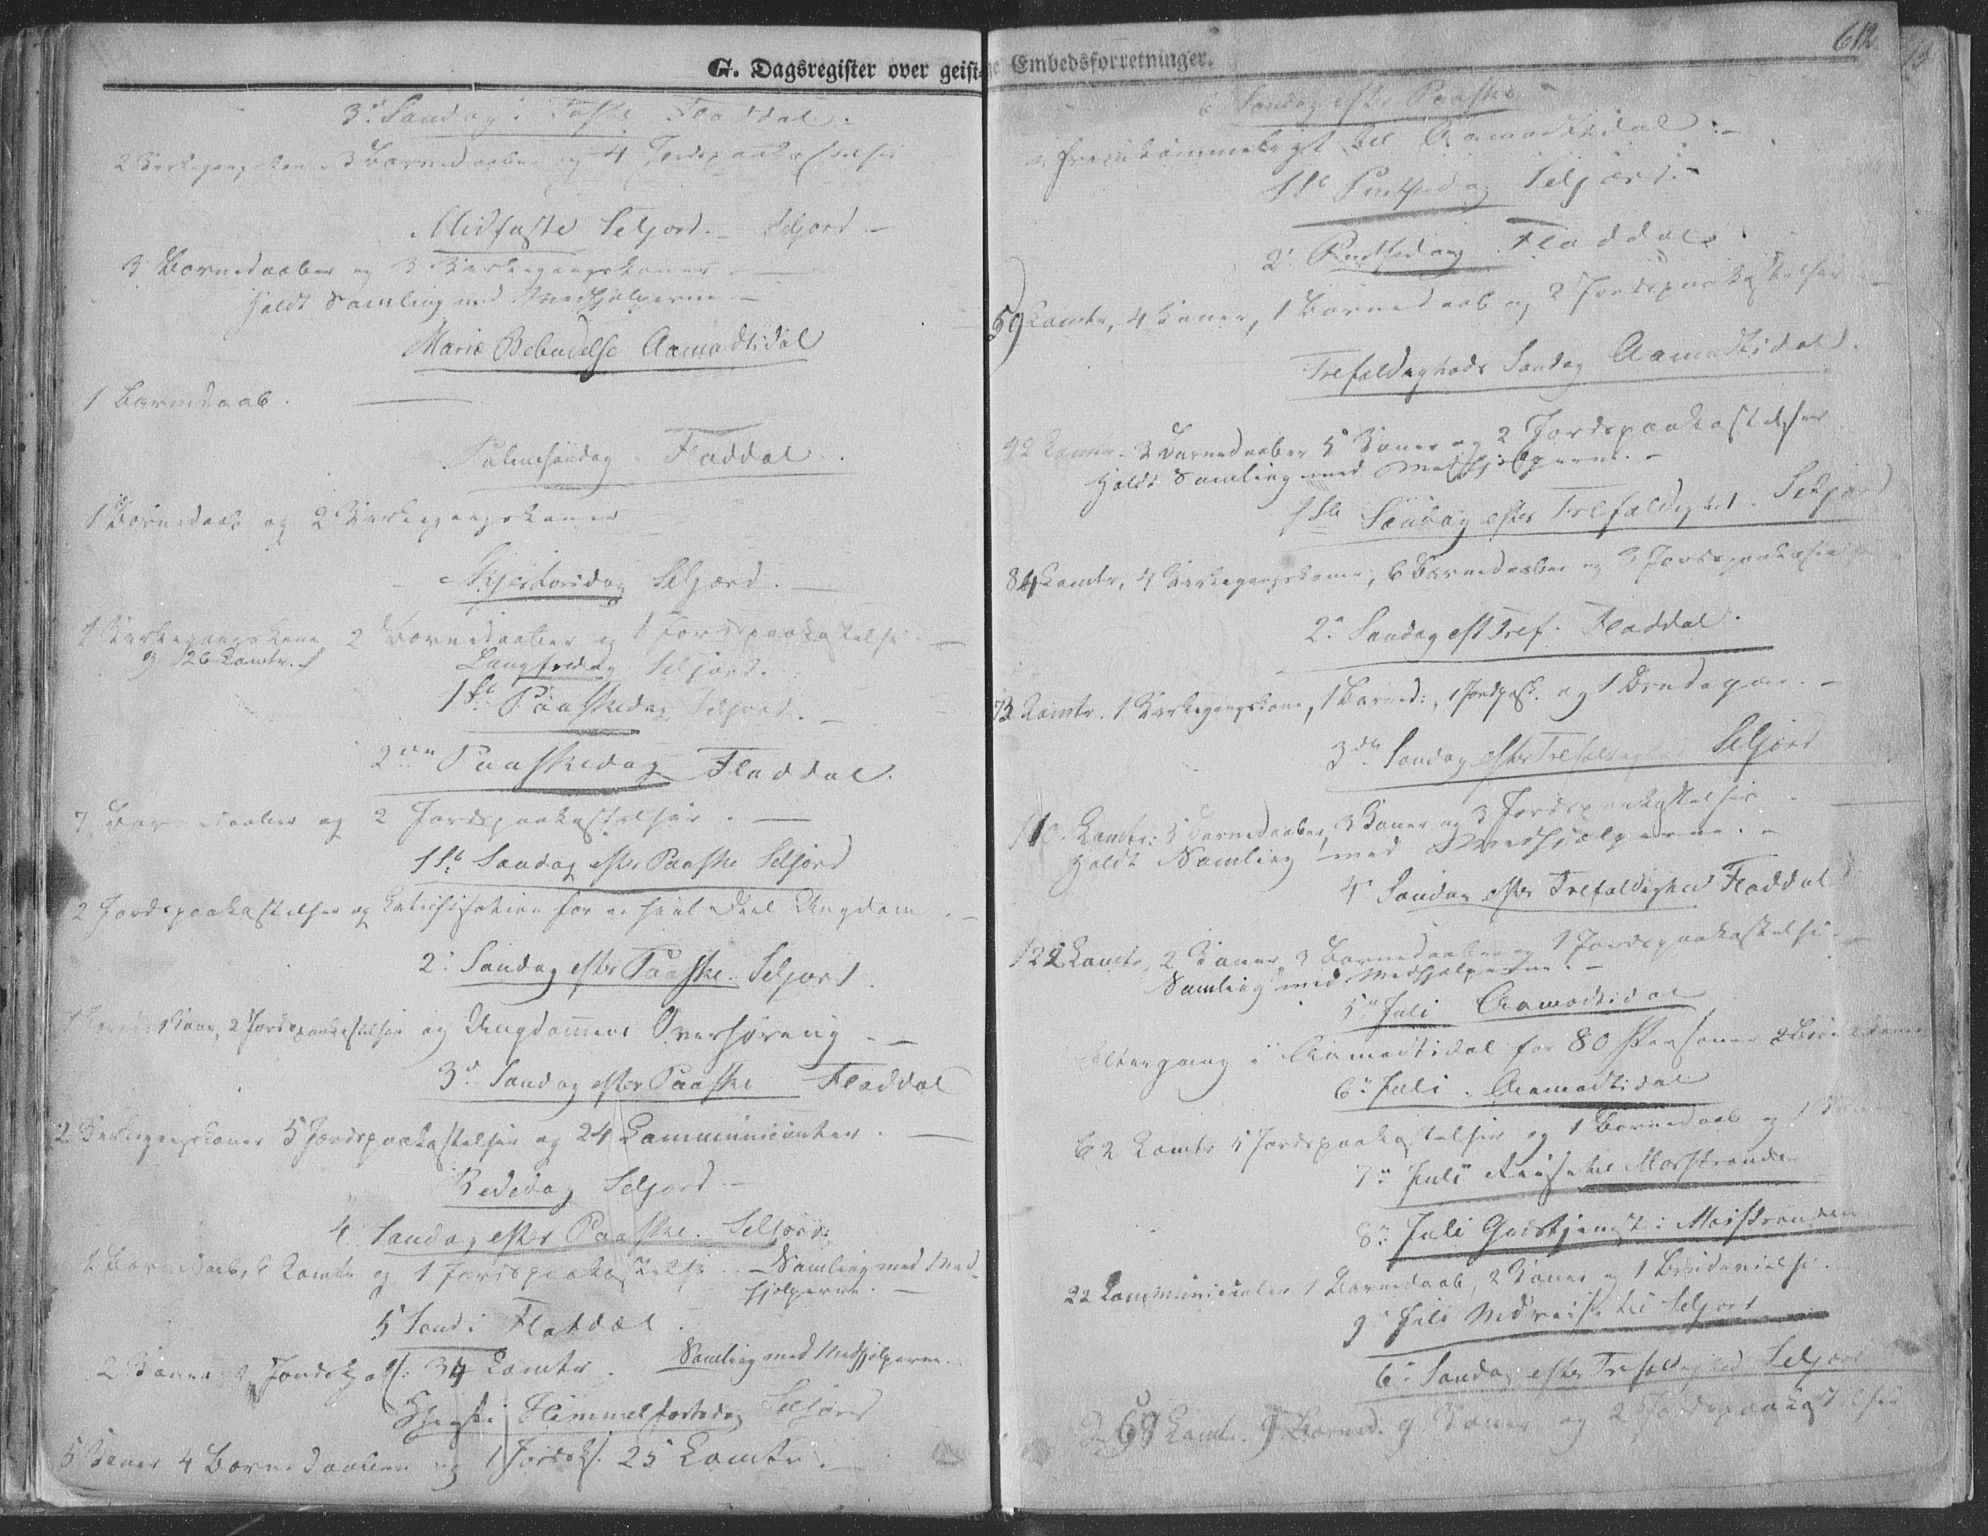 G. Dagsregister over geistlige Embedsforretninger.
3d Søndag i Faste Fladdal.
2 Kirkegangskoner 3 Barnedaaber og 4 Jordspaakastelser
Midfaste Seljord. Seljord.
3 Barnedaaber og 3 Kirkegangskoner
Holdt Samling med Medhjelperne
Mariæ Bebudelse Aamodtsdal
1 Barnedaab.
Palmesøndag Fladdal.
1 Barnedaab og 2 Kirkegangskoner
Skjertorsdag Seljord.
1 Kirkegangskone 2 Barnedaaber og 1 Jordspaakastelse
og 126 Comtr.
Langfredag Seljord.
1ste Paaskedag Seljord.
2den Paaskedag Fladdal.
7 Barnedaaber og 2 Jordspaakastelser.
1ste Søndag efter Paaske Seljord
2 Jordspaakastelser og Catechisation for en heel Deel Ungdom.
2. Søndag efter Paaske. Seljord.
1 Kone, 2 Jordspaakastelser og Ungdommens Overhøring
3d Søndag efter Paaske Fladdal
2 Kirkegangskoner 5 Jordspaakastelser og 24 Communicanter.
Bededag Seljord
4. Søndag efter Paaske. Seljord.
1 Barnedaab, 6 Comtr og 1 Jordspaakastelse. Samling med Med-
hjelperne.
5 Sond: Flatdal.
2 Koner 2 Jordskast: 34 Comtr. Samling med Medhjelperne.
Christi Himmelfartsdag Seljord
5 Koner 4 Barnedaaber og 1 Jordsk. 25 Comtr.
612
6 Søndag efter Paaske
fremkommeligt til Aamodtsdal.
1ste Pintsedag Seljord.
2. Pintsedag Fladdal.
59 Comtr, 4 Koner, 1 Barnedaab og 2 Jordspaakastelser
Trefoldigheds Søndag Aamodtsdal.
42 Comtr. 3 Barnedaaber 5 Koner og 2 Jordspaakastelser
Holdt Samling med Medhjelperne.
1ste Søndag efter Trefoldighed. Seljord
84 Comtr, 4 Kirkegangskoner, 6 Barnedaaber og 3 Jordspaakastelser
2. Søndag eft Tref. Fladdal.
73 Comtr. 1 Kirkegangskone, 1 Barned:, 1 Jordpaak. og 1 Brudepar.
3die Søndag efter Trefoldighed Seljord
110. Comtr: 5 Barnedaaber, 3 Koner og 3 Jordspaakastelser
Holdt Samling med Medhjelperne.
4. Søndag efter Trefoldighed Fladdal
122 Comtr, 2 Koner 3 Barnedaaber og 1 Jordspaakastelse.
Samling med Medhjelperne.
5te Juli Aamodtsdal
Altergang i Aamodtsdal for 80 Personer
6te Juli. Aamodtsdal
62 Comtr 5 Jordspaakastelser og 1 Barnedaab og 1
7de Juli Reise til Mosstranden
8de Juli Gudstjenst i Mosstranden
22 Communicanter 1 Barnedaab, 2 Koner og 1 Brudevielse.
9de Juli Nedreise til Seljord
6te Søndag efter Trefoldighed Seljord
69 Comtr. 9 Barned. 9 Koner og 2 Jordspaakastelser